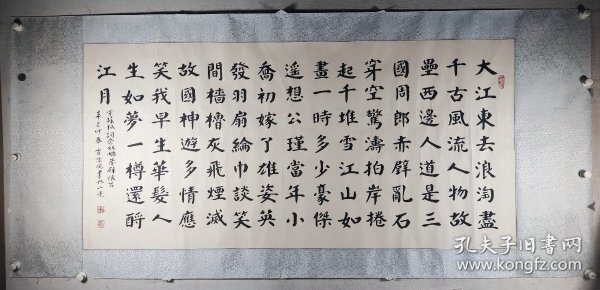 大江東去浪淘盡
千古風流人物故
壘西邊人道是三
國周郎赤壁亂石
穿空驚濤拍岸捲
起千堆雪江山如
畫一時多少豪傑
遙想公瑾當年小
喬初嫁了雄姿英
發羽扇綸巾談笑
間檣櫓灰飛煙滅
故國神遊多情應
笑我早生華髮人
生如夢一樽還酹
江月
蘇軾詞念奴嬌赤壁懷古
孔夫子旧书网
www.kongfz.com